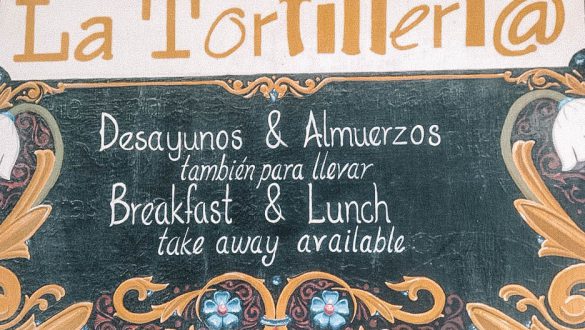 La Tortilleri@
Desayunos & Almuerzos
también para llevar
Breakfast & Lunch
take away available